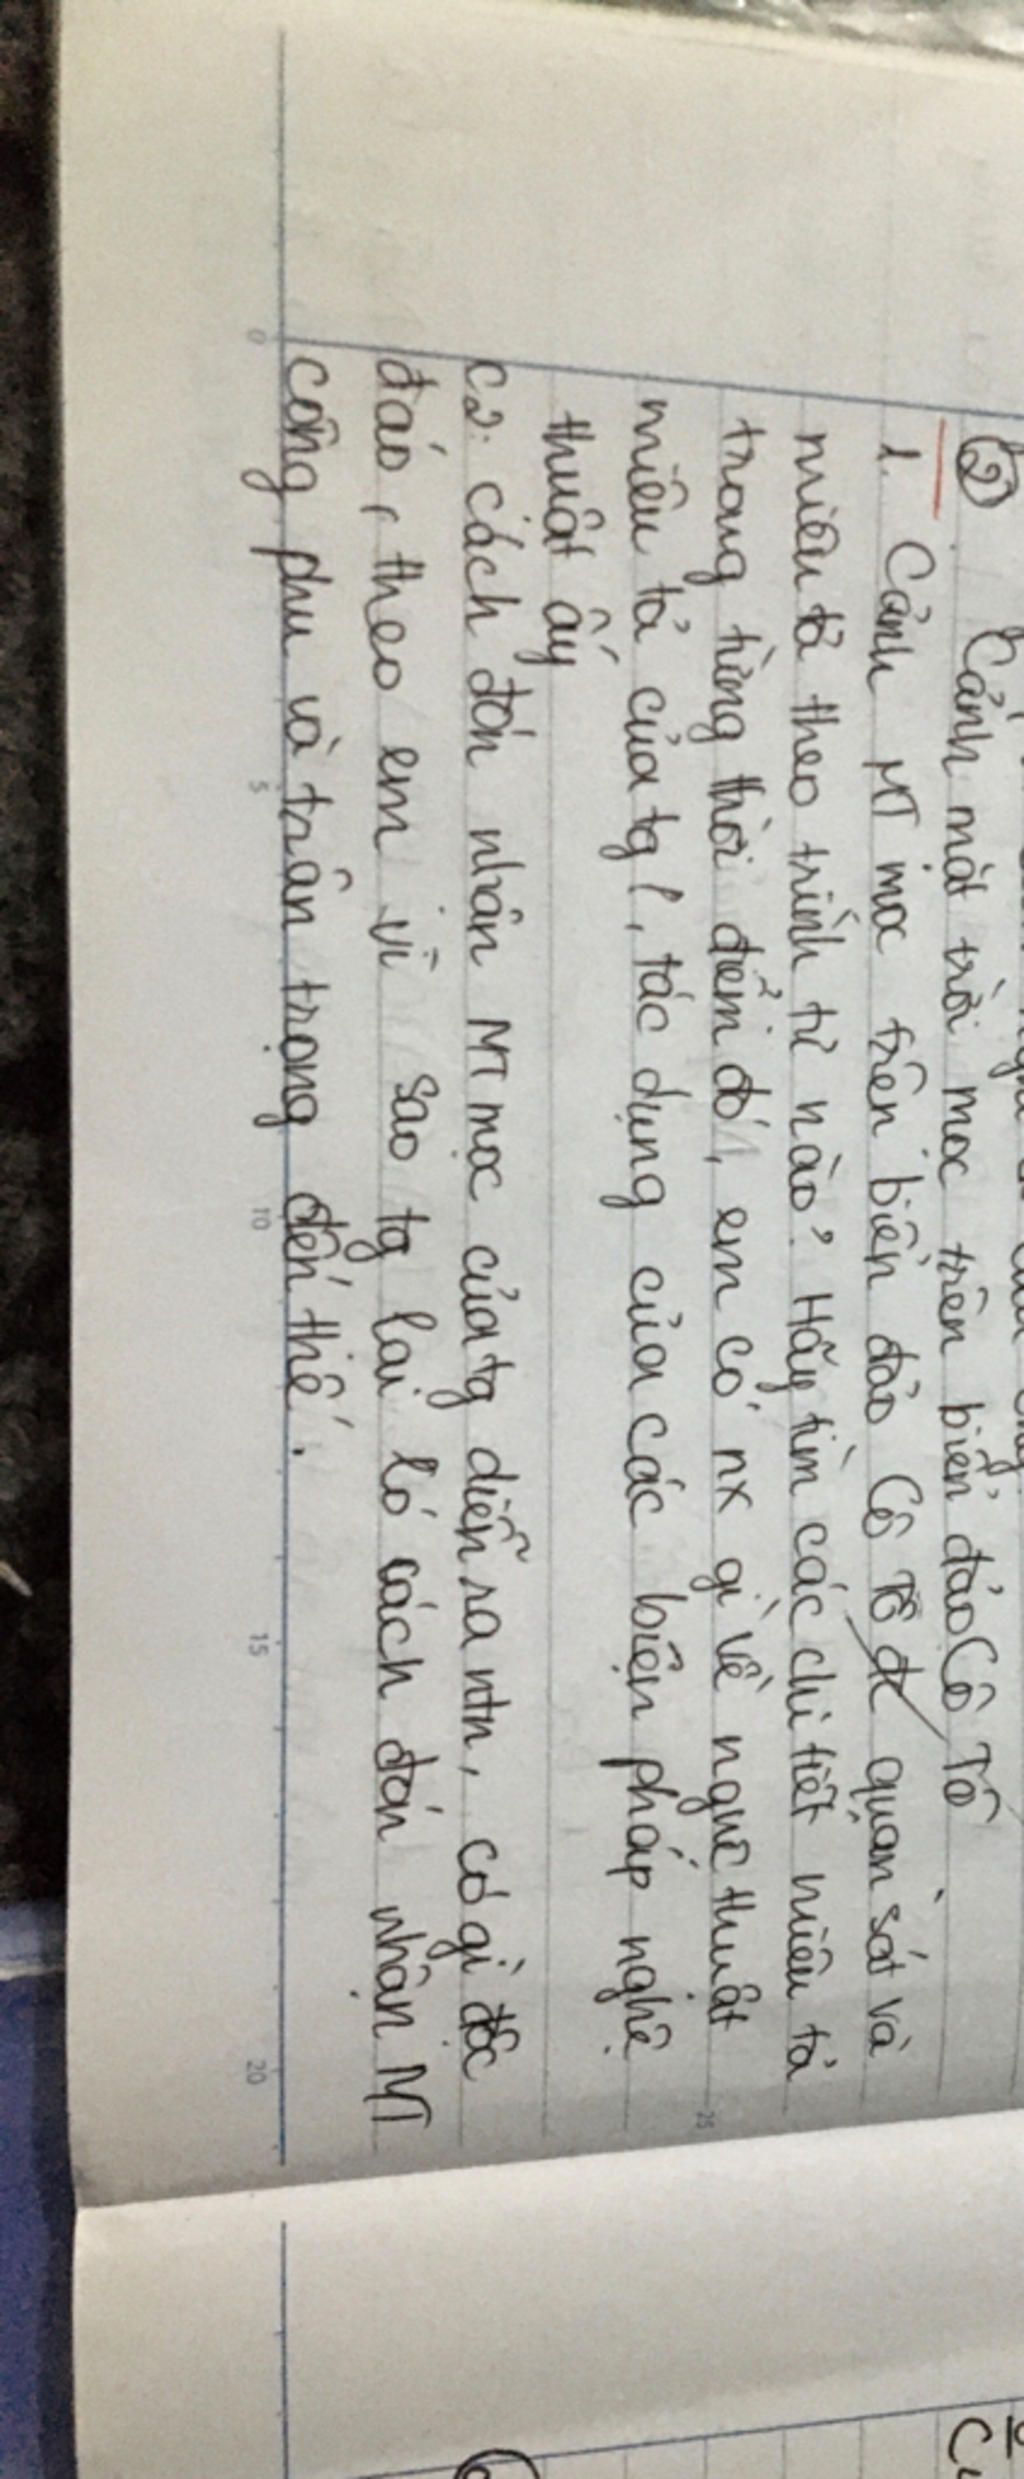 ② Cảnh mặt trời mọc trên biển đảo Cô Tô
1. Cảnh MT mọc trên biển đảo Cô Tô đc quan sát và
miêu tả theo trình tự nào? Hãy tìm các chi tiết miêu tả
trong từng thời điểm đó, em có nx gì về nghệ thuật
miêu tả của tg?, tác dụng của các biện pháp nghệ
thuật ấy
C2: cách đón nhận MT mọc của tg diễn ra ntn, có gì độc
đáo, theo em vì sao tg lại ló cách đón nhận MT
công phu và trân trọng đến thế.
0
5
10
15
20
25